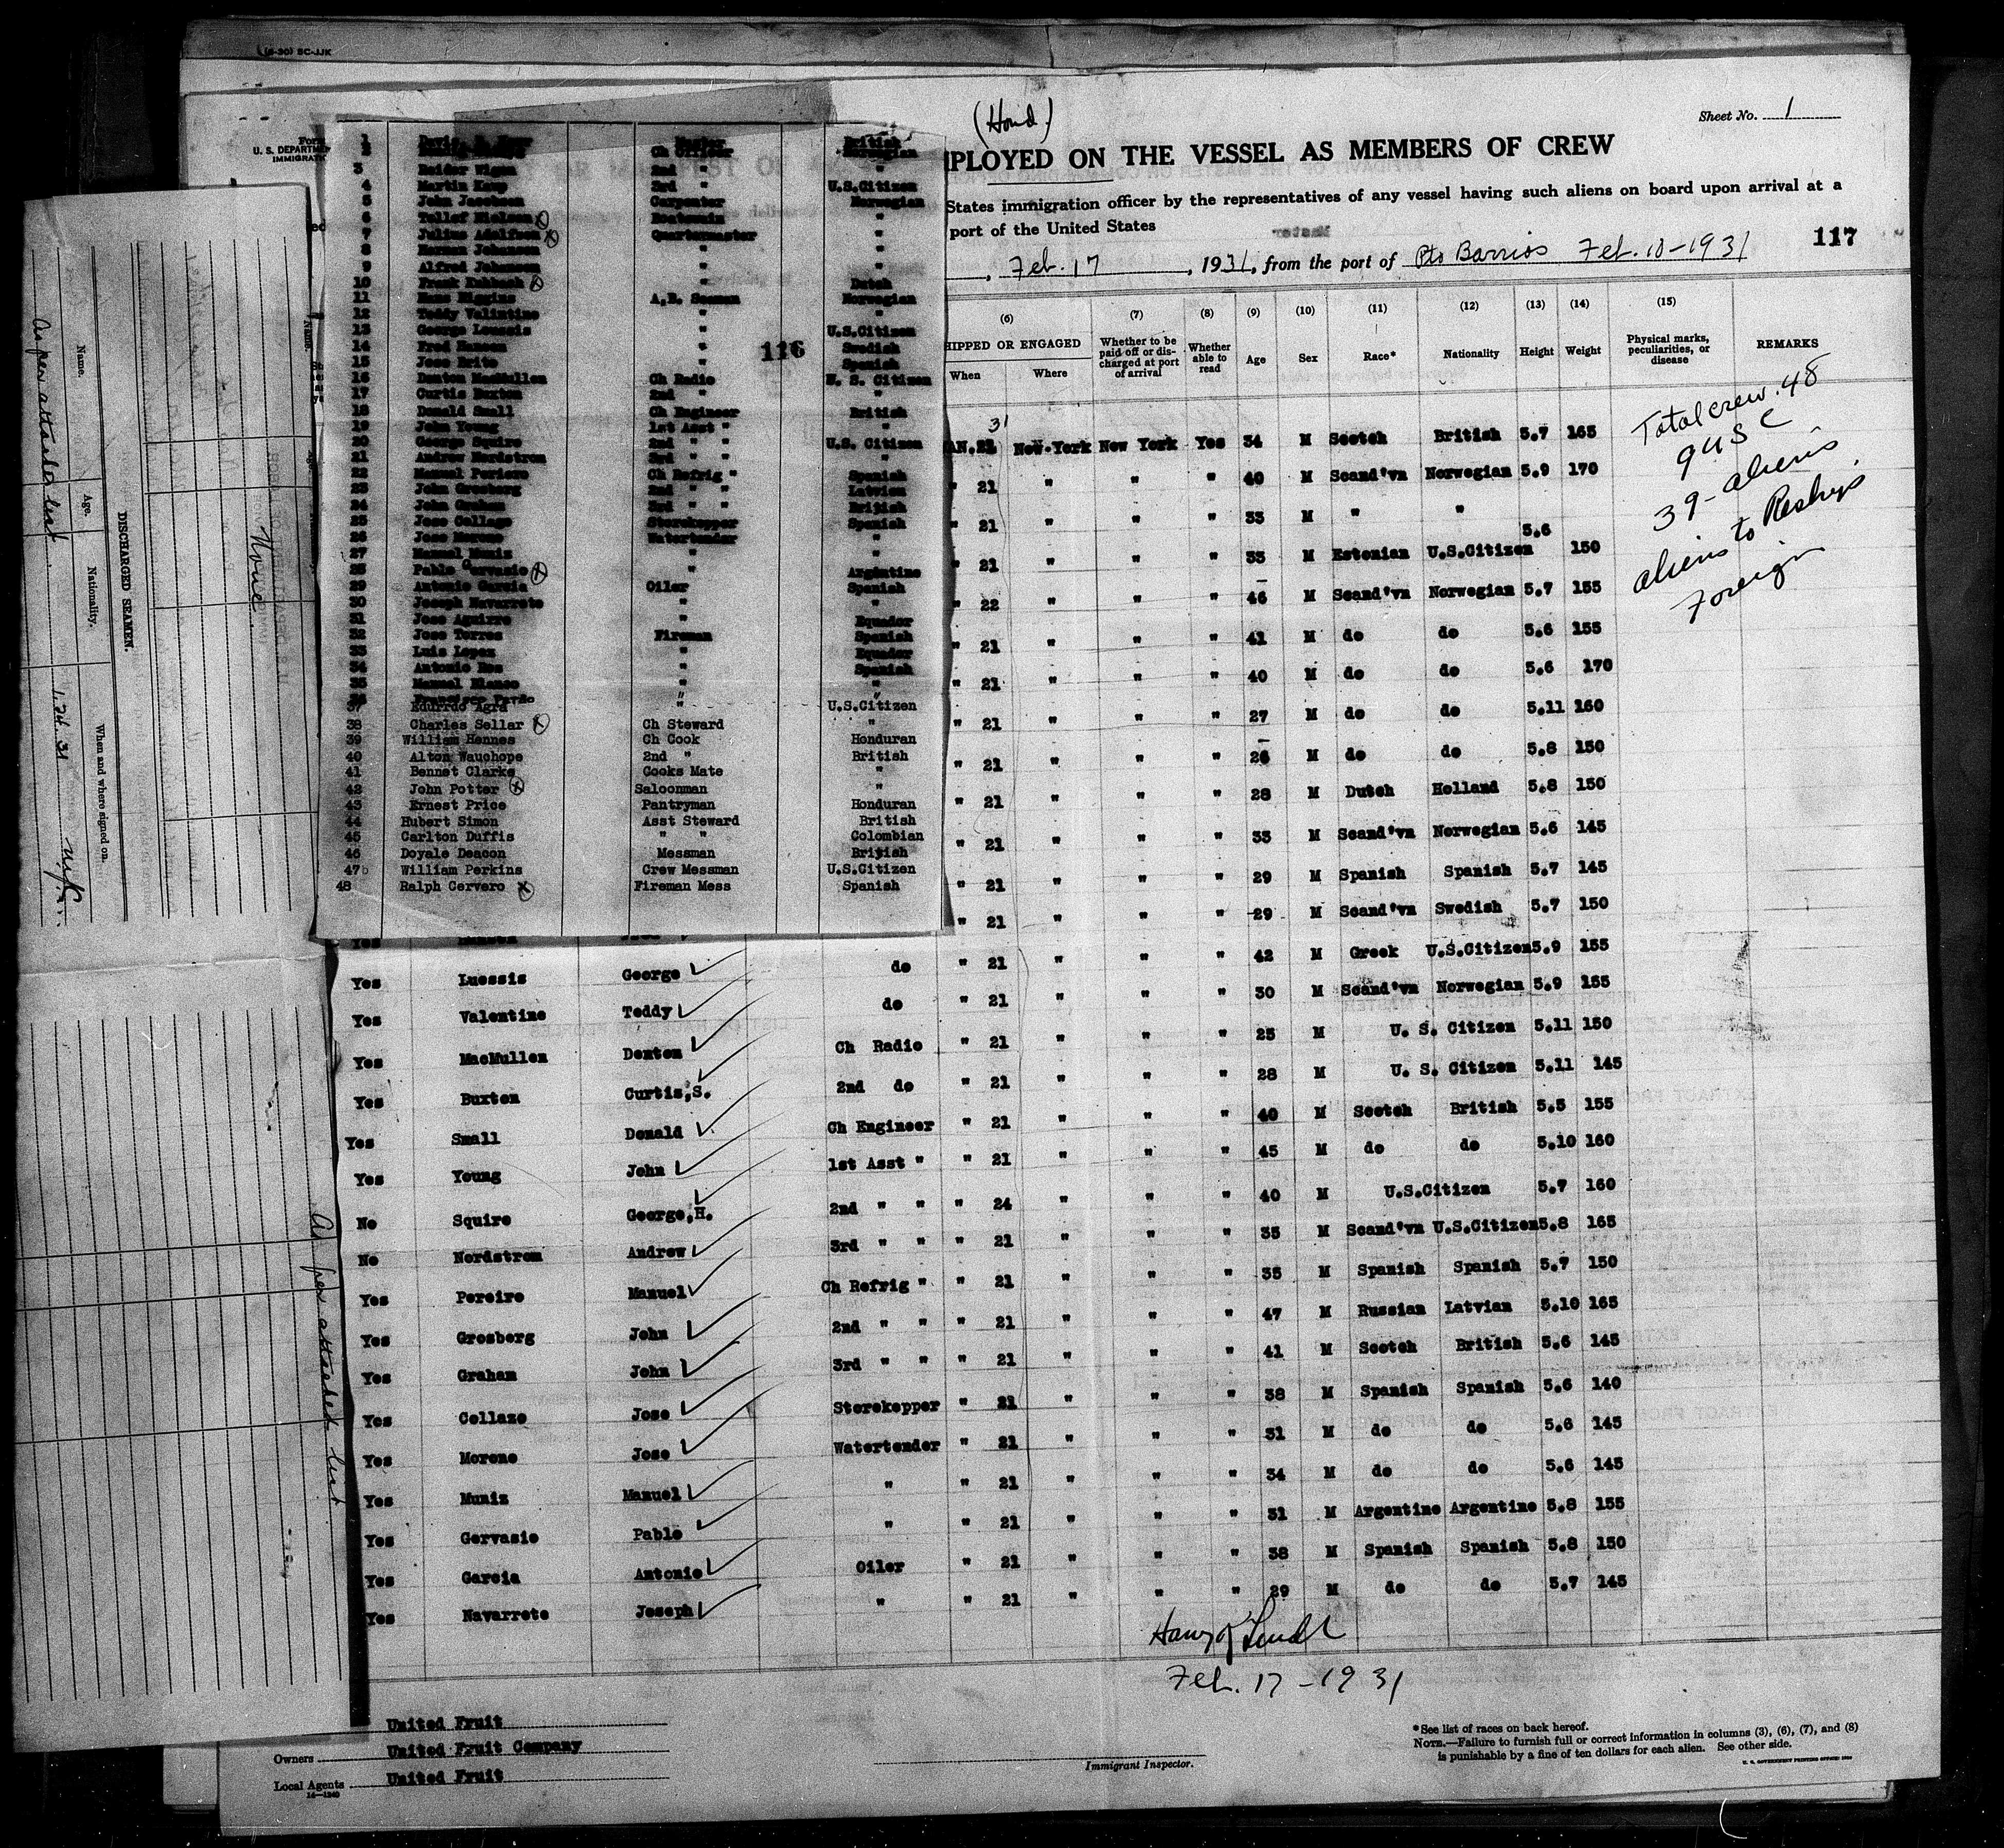 (6-30) SC-JJK
(Hond.)
Sheet No. 1
U. S. DEPARTMEN
IMMIGRAT
MPLOYED ON THE VESSEL AS MEMBERS OF CREW
States immigration officer by the representatives of any vessel having such aliens on board upon arrival at a
port of the United States
117
, Feb. 17, 1931, from the port of Pto Barrios Feb. 10-1931
1 Master British
2 Ch Officer Norwegian
3 Reider Wigen 2nd " "
4 Martin Kamp 3rd " U.S.Citizen
5 John Jacobsen Carpenter Norwegian
6 Tallef Nielsen Boatswain "
7 Julius Adolfsen Quartermaster "
8 Herman Johansen " "
9 Alfred Johansen " "
10 Frank " Dutch
11 Hans Higgins A.B. Seaman Norwegian
12 Teddy Valintine " "
13 George Loussis " U.S.Citizen
14 Fred Hansen " Swedish
15 Jose Brito " Spanish
116
16 Denton MacMullen Ch Radio U. S. Citizen
17 Curtis Buxton 2nd " "
18 Donald Small Ch Engineer British
19 John Young 1st Asst " "
20 George Squire 2nd " " U.S. Citizen
21 Andrew Nordstrom 3rd " " "
22 Manuel Periero Ch Refrig " Spanish
23 John Grosberg 2nd " " Latvian
24 John Graham 3rd " " British
25 Jose Collage Storekepper Spanish
26 Jose Moreno Watertender "
27 Manuel Muniz " "
28 Pablo Gervasio " Argentine
29 Antonio Garcia Oiler Spanish
30 Joseph Navarrete " "
31 Jose Aguirre " Equador
32 Jose Torres Fireman Spanish
33 Luis Lopez " Equador
34 Antonio Ros " Spanish
35 Manuel Blanco " "
36 Francisco Pardo " "
37 Edurrdo Agra " U.S.Citizen
38 Charles Sellar Ch Steward "
39 William Hennes Ch Cook Honduran
40 Alton Wauchope 2nd " British
41 Bennet Clarke Cooks Mate "
42 John Potter Saloonman "
43 Ernest Price Pantryman Honduran
44 Hubert Simon Asst Steward British
45 Carlton Duffis " " Colombian
46 Doyale Deacon Messman British
47 William Perkins Crew Messman U.S.Citizen
48 Ralph Cervero Fireman Mess Spanish
(6) (7) (8) (9) (10) (11) (12) (13) (14) (15)
HIPPED OR ENGAGED
When Where
Whether to be paid off or discharged at port of arrival
Whether able to read
Age Sex Race* Nationality Height Weight
Physical marks, peculiarities, or disease
REMARKS
Total crew. 48
9 USC
39 - aliens
aliens to Reship
Foreign
31
AN.21 New-York New York Yes 34 M Scotch British 5.7 165
" 21 " " " 40 M Scand'vn Norwegian 5.9 170
" 21 " " " 33 M " " 5.6
" 21 " " " 33 M Estonian U.S.Citizen 150
" 22 " " " 46 M Scand'vn Norwegian 5.7 155
" 21 " " " 41 M do do 5.6 155
" 21 " " " 40 M do do 5.6 170
" 21 " " " 27 M do do 5.11 160
" 21 " " " 26 M do do 5.8 150
" 21 " " " 28 M Dutch Holland 5.8 150
" 21 " " " 33 M Scand'vn Norwegian 5.6 145
" 21 " " " 29 M Spanish Spanish 5.7 145
" 21 " " " 29 M Scand'vn Swedish 5.7 150
Yes Luessis George do " 21 " " " 42 M Greek U.S.Citizen 5.9 155
Yes Valentine Teddy do " 21 " " " 30 M Scand'vn Norwegian 5.9 155
Yes MacMullen Denton Ch Radio " 21 " " " 25 M U. S. Citizen 5.11 150
Yes Buxton Curtis,S. 2nd do " 21 " " " 28 M U. S. Citizen 5.11 145
Yes Small Donald Ch Engineer " 21 " " " 40 M Scotch British 5.5 155
Yes Young John 1st Asst " " 21 " " " 45 M do do 5.10 160
No Squire George,H. 2nd " " " 24 " " " 40 M U.S.Citizen 5.7 160
No Nordstrom Andrew 3rd " " " 21 " " " 35 M Scand'vn U.S.Citizen 5.8 165
Yes Pereiro Manuel Ch Refrig " " 21 " " " 35 M Spanish Spanish 5.7 150
Yes Grosberg John 2nd " " " 21 " " " 47 M Russian Latvian 5.10 165
Yes Graham John 3rd " " " 21 " " " 41 M Scotch British 5.6 145
Yes Collazo Jose Storekepper " 21 " " " 38 M Spanish Spanish 5.6 140
Yes Moreno Jose Watertender " 21 " " " 31 M do do 5.6 145
Yes Muniz Manuel " " 21 " " " 34 M do do 5.6 145
Yes Gervasio Pablo " " 21 " " " 31 M Argentine Argentine 5.8 155
Yes Garcia Antonio Oiler " 21 " " " 38 M Spanish Spanish 5.8 150
Yes Navarrete Joseph " " 21 " " " 29 M do do 5.7 145
Feb. 17-1931
United Fruit
Owners United Fruit Company
Local Agents United Fruit
14-1240
Immigrant Inspector.
*See list of races on back hereof.
NOTE.—Failure to furnish full or correct information in columns (3), (6), (7), and (8)
is punishable by a fine of ten dollars for each alien. See other side.
DISCHARGED SEAMEN.
Name. Age. Nationality. When and where signed on.
As per attached list 1.24.31
None
Name.
As per attached list